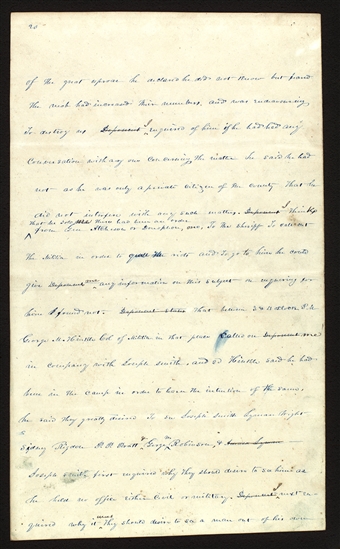 30
of the great uproar he declared he did not know but feared
the mob had increased their numbers, and was endeavoring
to destroy us Deponent I enquired of him if he had had any
conversation with any one concerning the matter he said he had
not as he was only a private citizen of the county that he
did not interfere with any such matters. Deponent I think
that he told me there had been an order
from Gen Atchison or Doniphan, one, to the sheriff to call out
the Militia in order to quell the riots and to go to him he could
give Deponent me any information on this subject on enquiring for
him I found not. Deponent states that between 3 & 4 oclock P.M.
George M. Hinkle Col of Militia in that place called on Deponent me
in company with Joseph Smith. and sd Hinkle said he had
been in the camp in order to learn the intention of the same,
he said they greatly desired to see Joseph Smith Lyman Wight
Sidney Rigdon P. P. Pratt & George W Robinson, &
Joseph Smith first enquired why they should desire to see him as
he held no office either Civil or military. Deponent I next en-
quired why it was they should desire to see a man out of his own